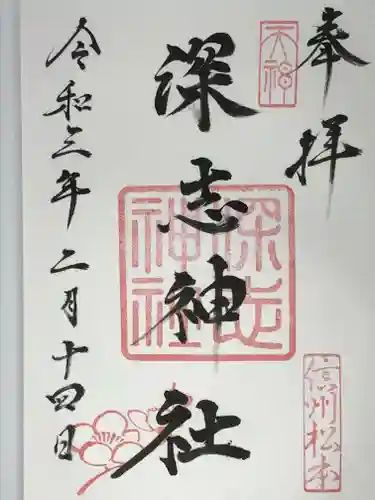 奉拝
天神
深志神社
深志神社
信州松本
令和三年二月十四日